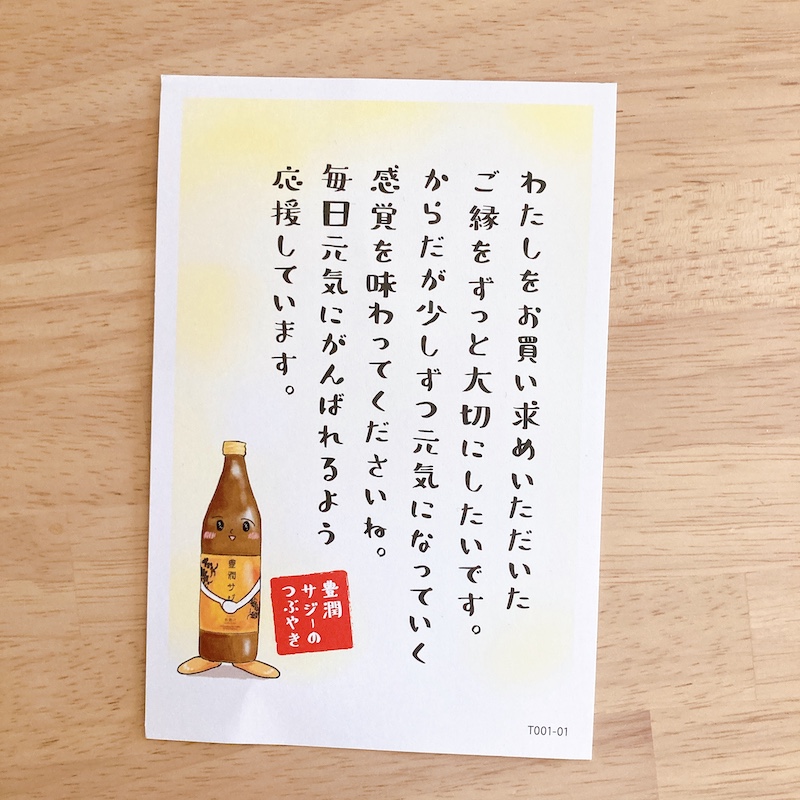 わたしをお買い求めいただいた
ご縁をずっと大切にしたいです。
からだが少しずつ元気になっていく
感覚を味わってくださいね。
毎日元気にがんばれるよう
応援しています。
豊潤サジー
豊潤
サジーの
つぶやき
T001-01